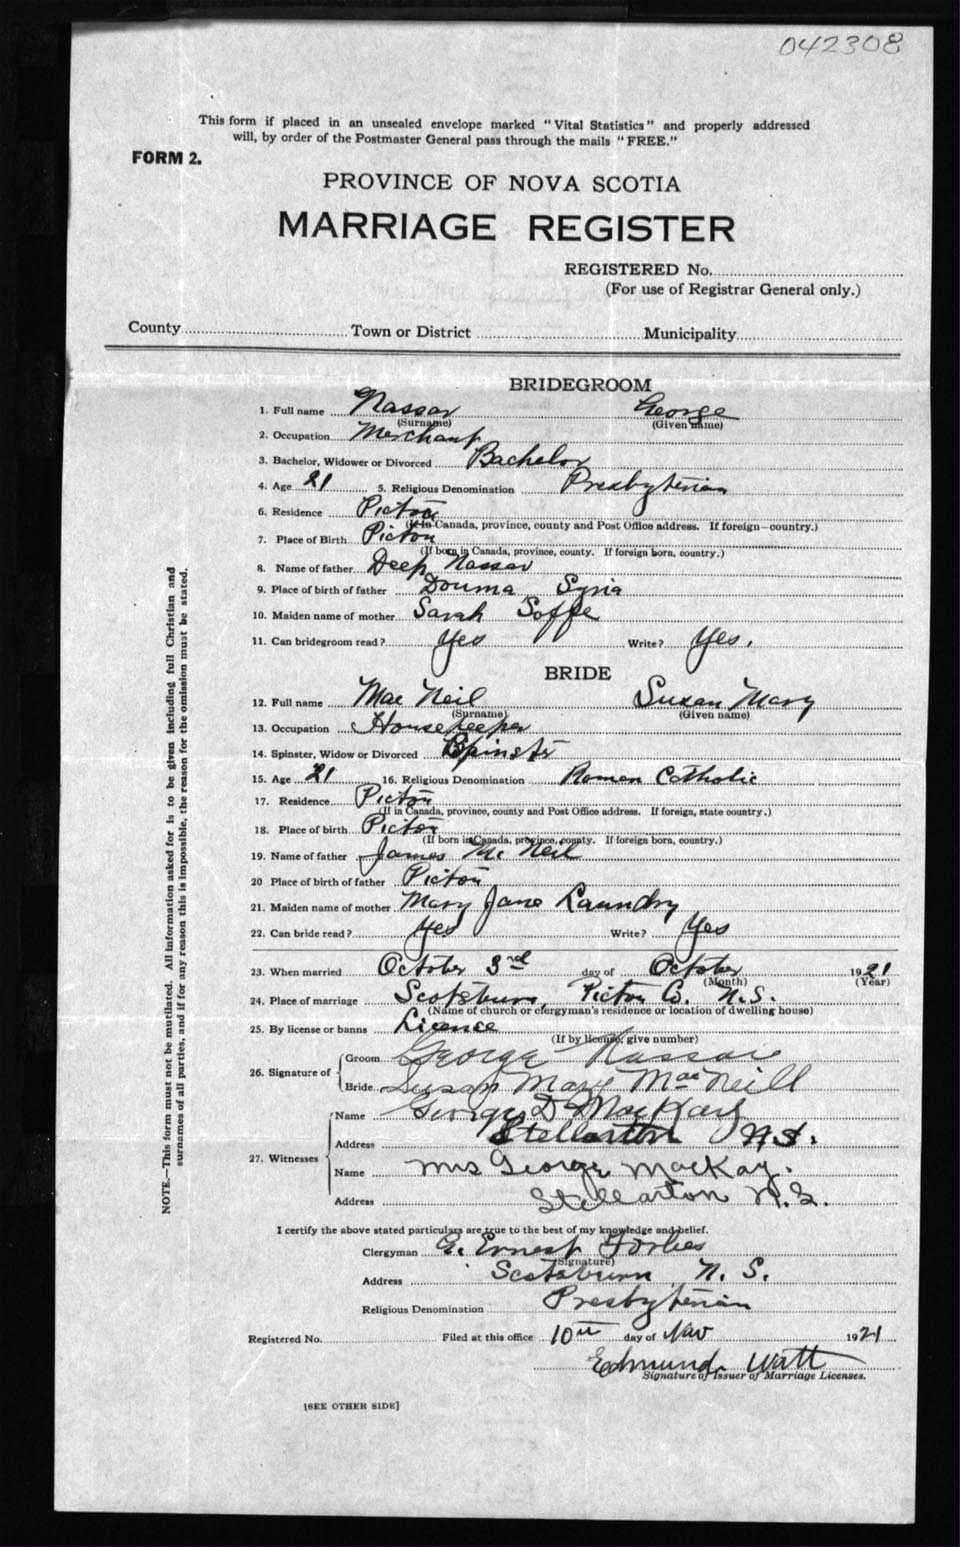 042308
This form if placed in an unsealed envelope marked "Vital Statistics" and properly addressed
will, by order of the Postmaster General pass through the mails "FREE."
FORM 2.
PROVINCE OF NOVA SCOTIA
MARRIAGE REGISTER
REGISTERED No.
(For use of Registrar General only.)
County Town or District Municipality
BRIDEGROOM
1. Full name Nassar George
(Surname) (Given name)
2. Occupation Merchant
3. Bachelor, Widower or Divorced Bachelor
4. Age 21 5. Religious Denomination Presbyterian
6. Residence Pictou
(If in Canada, province, county and Post Office address. If foreign—country.)
7. Place of Birth Pictou
(If born in Canada, province, county. If foreign born, country.)
8. Name of father Deep Nassar
9. Place of birth of father Douma Syria
10. Maiden name of mother Sarah Soffe
11. Can bridegroom read? Yes Write? Yes.
BRIDE
12. Full name Mac Neil Suzan Mary
(Surname) (Given name)
13. Occupation Housekeeper
14. Spinster, Widow or Divorced Spinster
15. Age 21 16. Religious Denomination Romen Catholic
17. Residence Pictou
(If in Canada, province, county and Post Office address. If foreign, state country.)
18. Place of birth Pictou
(If born in Canada, province, county. If foreign born, country.)
19. Name of father James Mc Neil
20 Place of birth of father Pictou
21. Maiden name of mother Mary Jane Laundry
22. Can bride read? Yes Write? Yes
23. When married October 3rd day of October 1921
(Month) (Year)
24. Place of marriage Scotsburn, Pictou Co. N.S.
(Name of church or clergyman's residence or location of dwelling house)
25. By license or banns Licence
(If by license, give number)
26. Signature of
Groom George Nassar
Bride Susan Mary MacNeill
27. Witnesses
Name George D MacKay
Address Stellarton N.S.
Name Mrs George MacKay.
Address Stellarton N.S.
I certify the above stated particulars are true to the best of my knowledge and belief.
Clergyman G. Ernest Forbes
(Signature)
Address Scotsburn, N. S.
Religious Denomination Presbyterian
Registered No. Filed at this office 10th day of Nov 1921
Edmund Watt
Signature of Issuer of Marriage Licenses.
[SEE OTHER SIDE]
NOTE.—This form must not be mutilated. All information asked for is to be given including full Christian and
surnames of all parties, and if for any reason this is impossible, the reason for the omission must be stated.